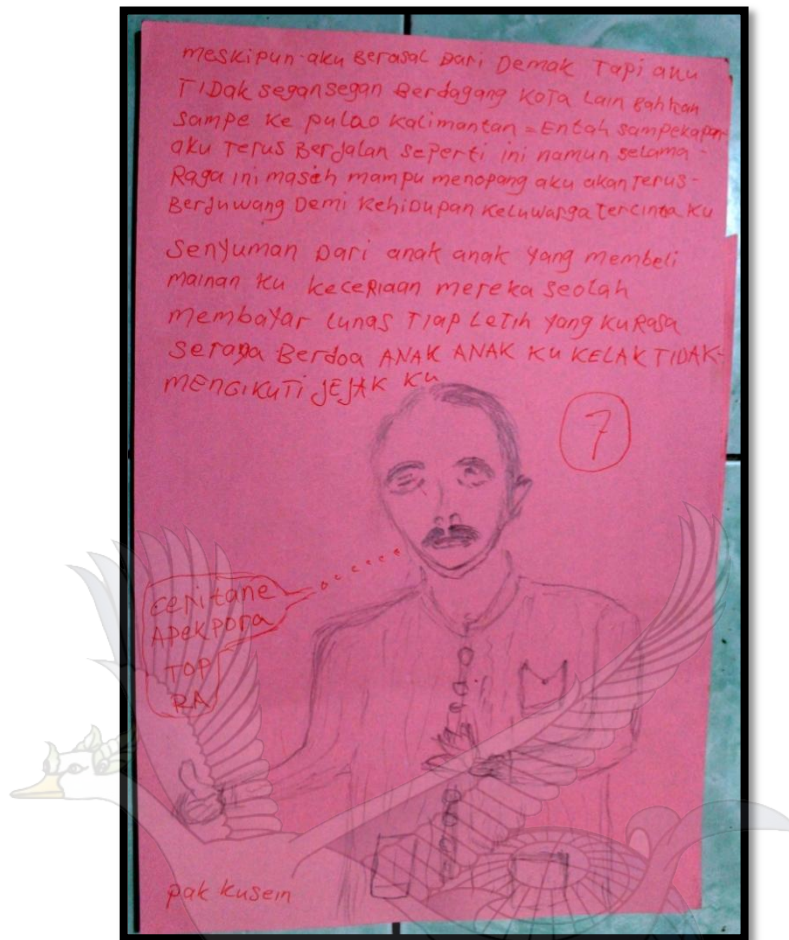 meskipun aku Berasal Dari Demak Tapi aku
TIDak segansegan Berdagang KoTa Lain Bahkan
Sampe Ke pulao Kalimantan = Entah sampekapan
aku Terus Berjalan seperti ini namun selama -
Raga ini masih mampu menopang aku akan Terus -
Berjuwang Demi Kehidupan Keluwarga Tercinta Ku
Senyuman Dari anak anak yang membeli
mainan Ku keceRiaan mereka seolah
membayar Lunas Tiap Letih yang KuRasa
Seraya Berdoa ANAK ANAK KU KELAK TIDAK-
MENGIKUTI JEJAK KU
7
ceritane
APEK PORA
TOP
RA
pak kusein